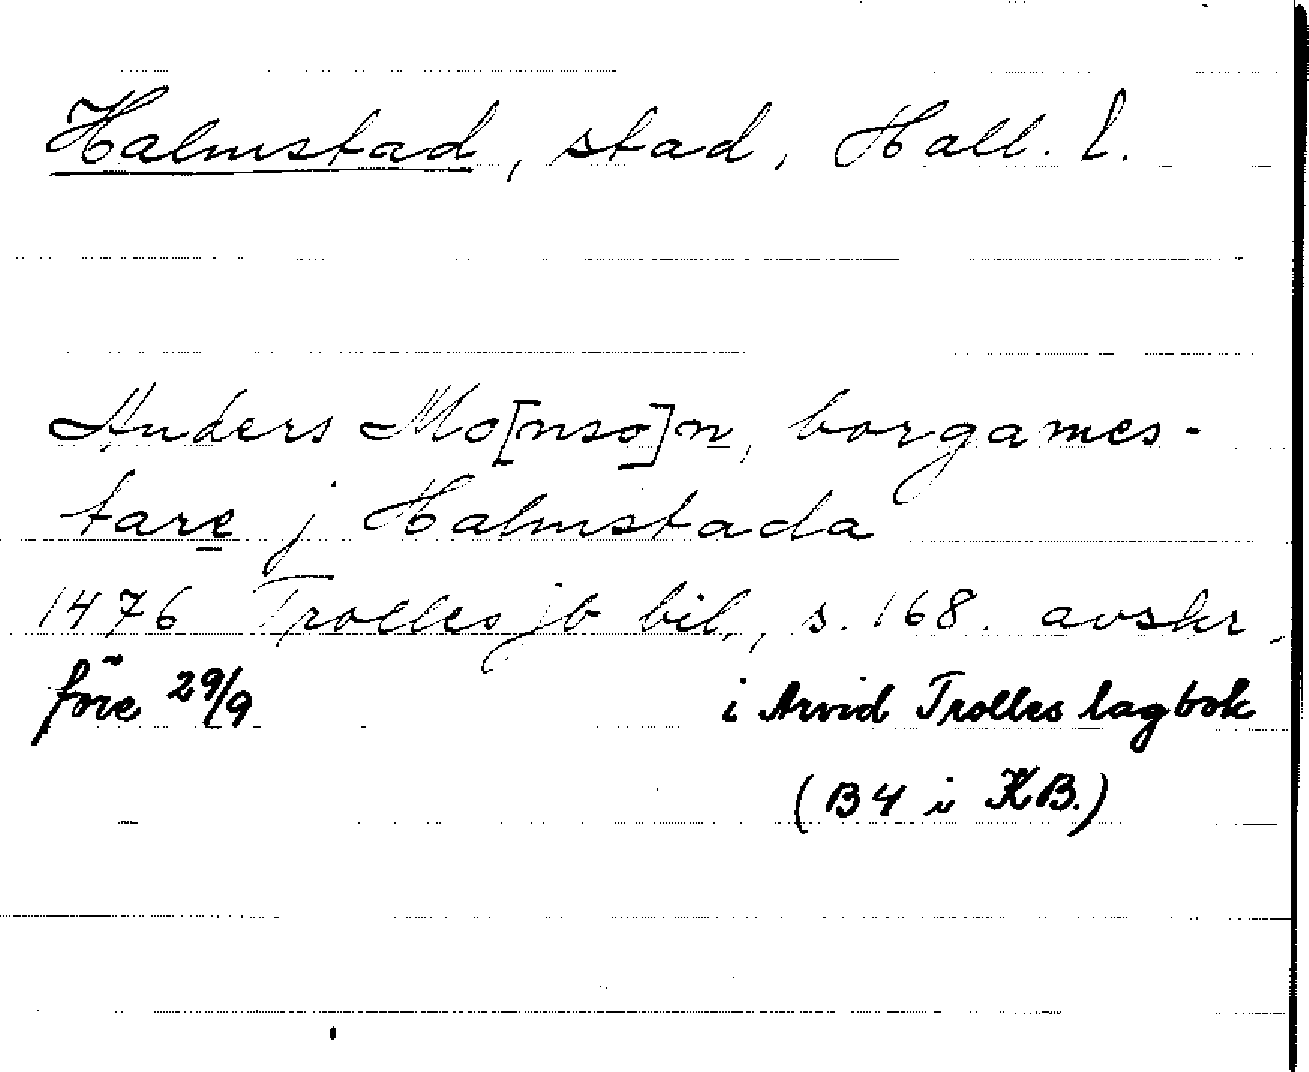 Halmstad, stad, Hall. l.
Anders Mo[nso]n, borgames-
tare j Halmstada
1476 Trolles jb bil., s. 168. avskr.
före 29/9 i Arvid Trolles lagbok
(B 4 i KB.)